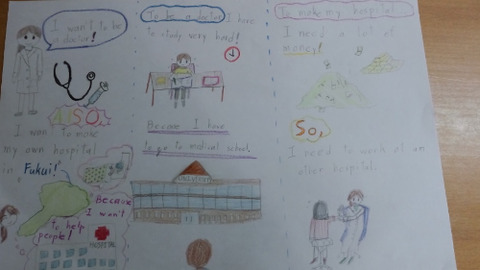 I won't to be
a doctor!
ALSO,
I want to make
my own hospital
in Fukui!
Because
I won't
to help
people!
HOSPITAL
To be a doctor I have
to study very hard!
Becose I have
to go to medical school.
To make my hospital
I need a lot of
money!
So,
I need to work at an
other hospital.